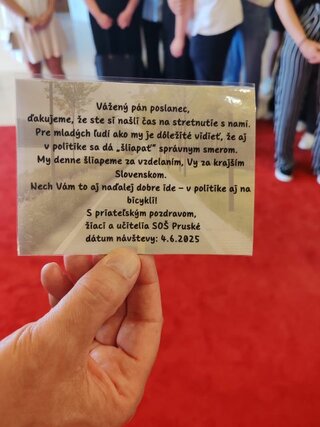 Vážený pán poslanec,
ďakujeme, že ste si našli čas na stretnutie s nami.
Pre mladých ľudí ako my je dôležité vidieť, že aj
v politike sa dá „šliapať" správnym smerom.
My denne šliapeme za vzdelaním, Vy za krajším
Slovenskom.
Nech Vám to aj naďalej dobre ide – v politike aj na
bicykli!
S priateľským pozdravom,
žiaci a učitelia SOŠ Pruské
dátum návštevy: 4.6.2025